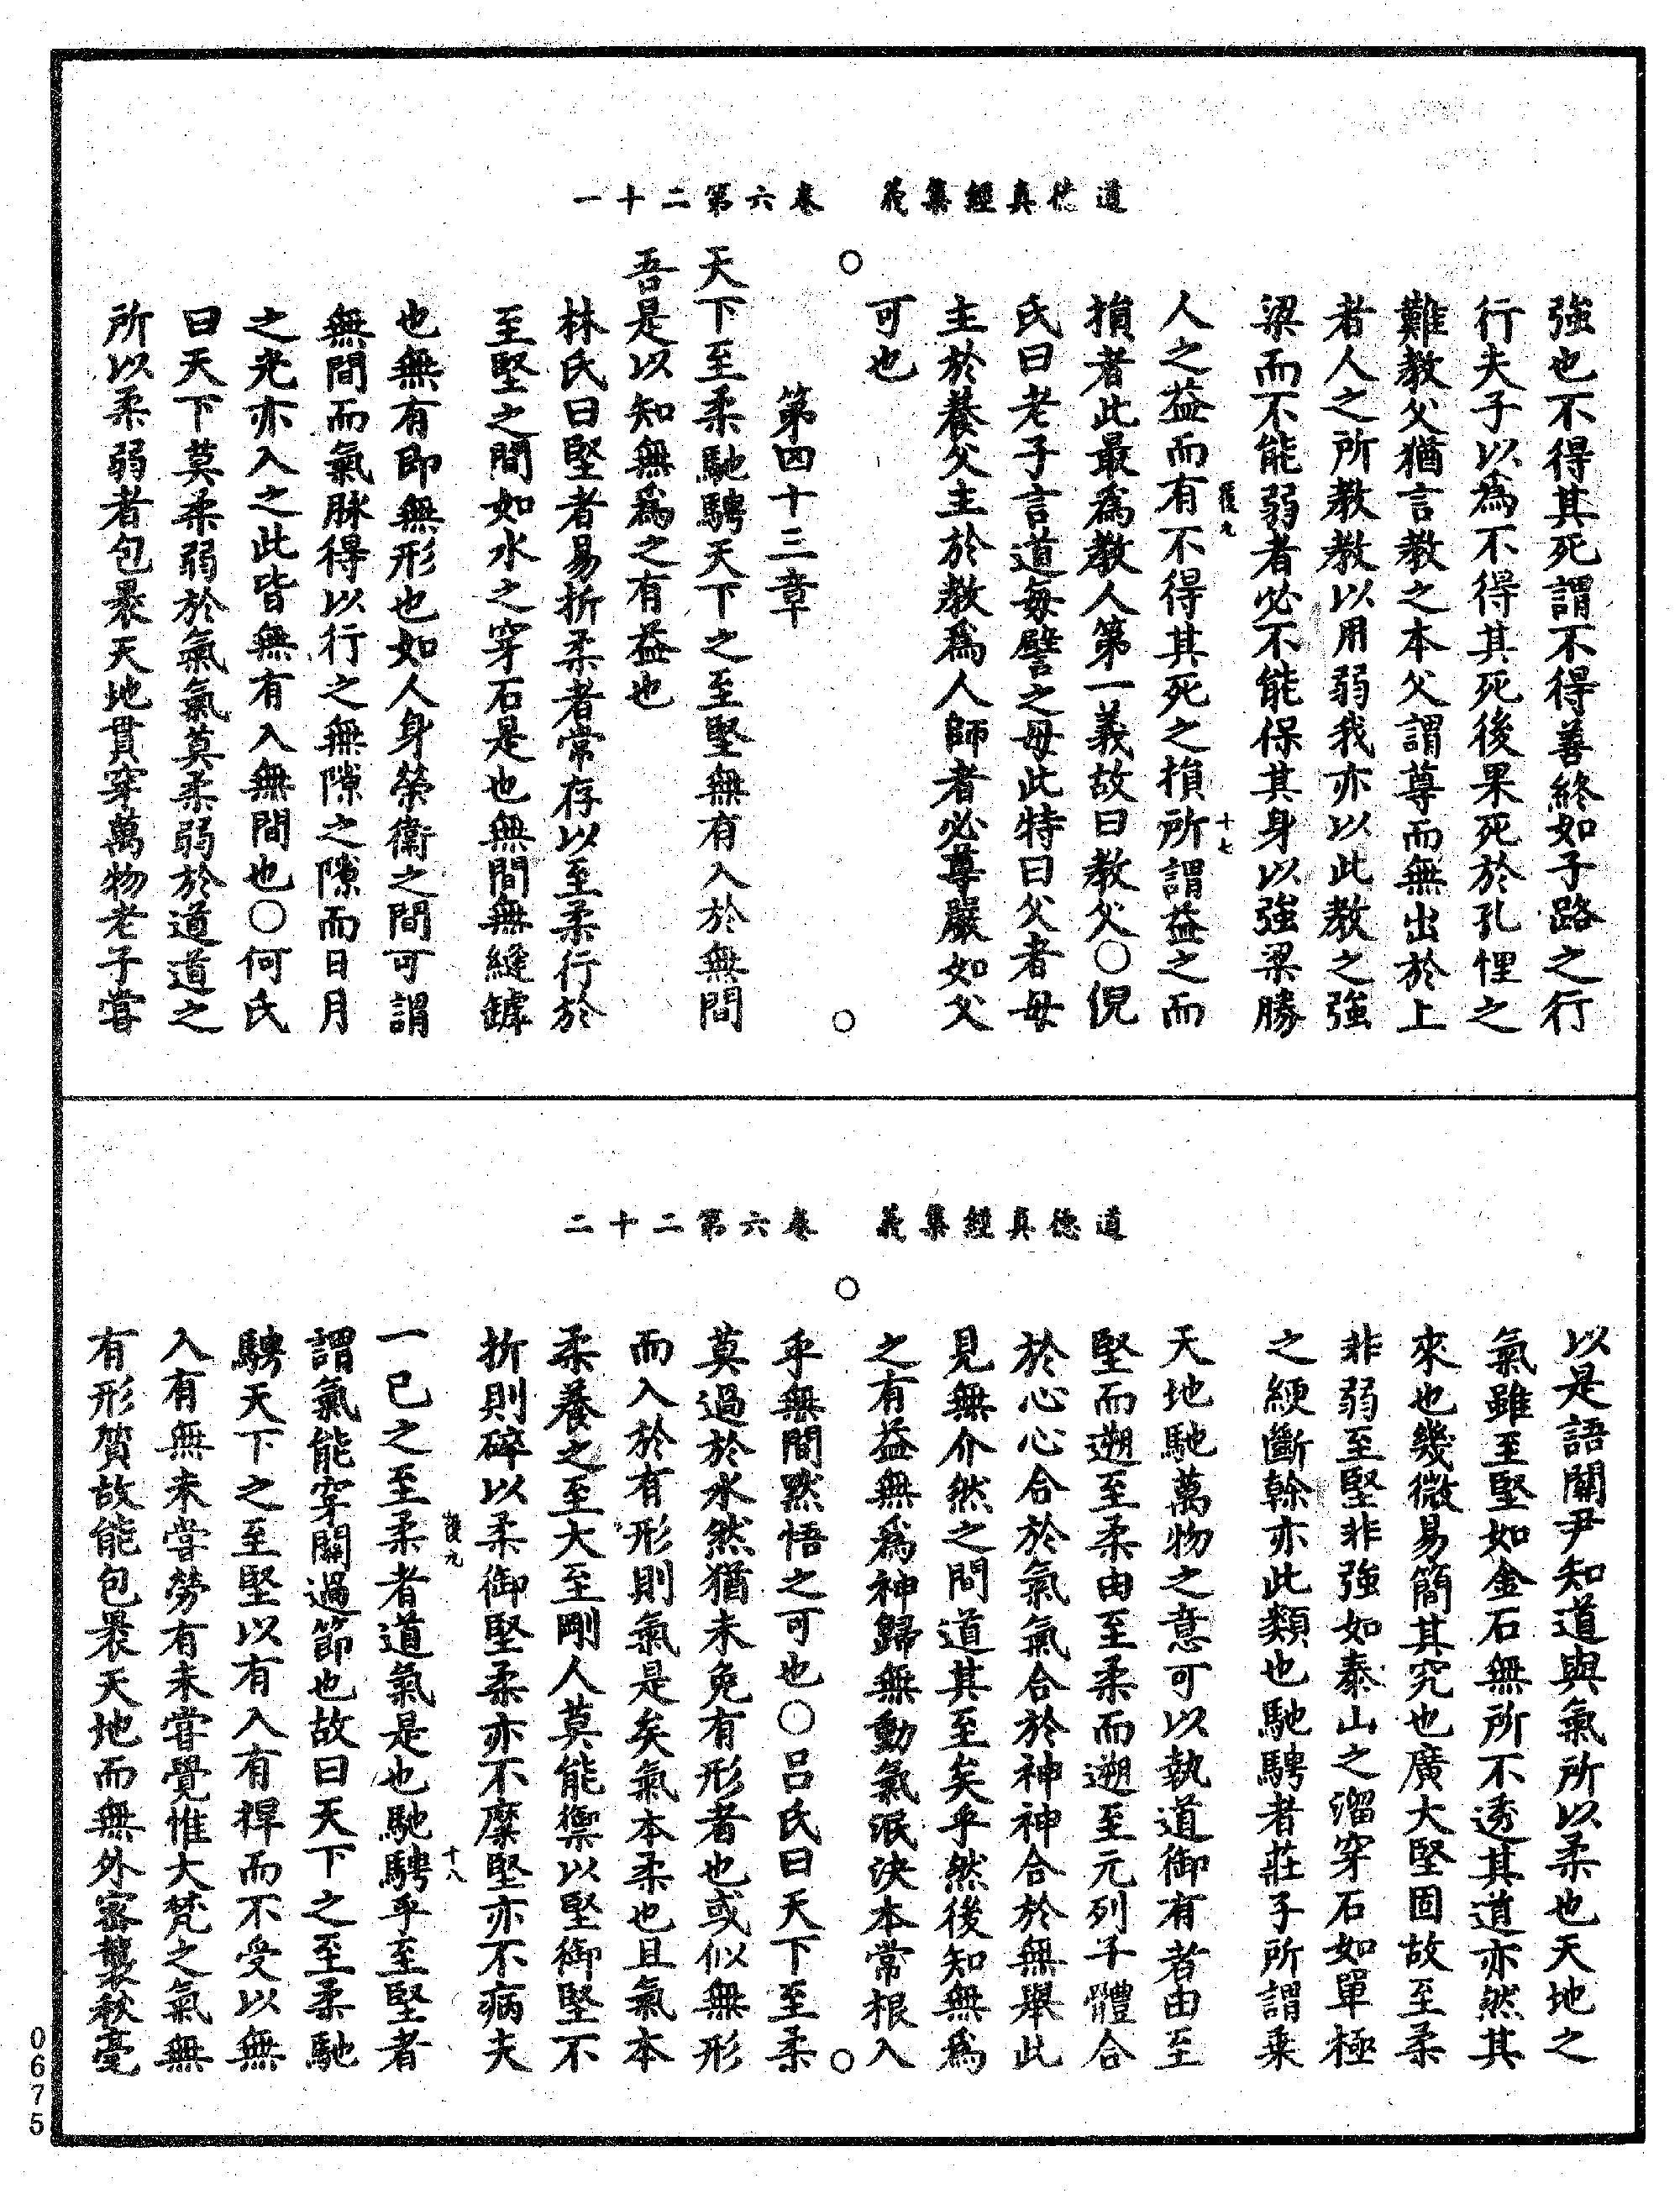 道德真經集義　卷六第二十一
強也不得其死謂不得善終如子路之行
行夫子以為不得其死後果死於孔悝之
難教父猶言教之本父謂尊而無出於上
者人之所教教以用弱我亦以此教之強
梁而不能弱者必不能保其身以強梁勝
人之益而有不得其死之損所謂益之而
十七
損者此最爲教人第一義故曰教父○倪
氏曰老子言道每譬之母此特曰父者母
主於養父主於教爲人師者必尊嚴如父
可也
第四十三章
天下至柔馳騁天下之至堅無有入於無間
吾是以知無爲之有益也
林氏曰堅者易折柔者常存以至柔行於
至堅之間如水之穿石是也無間無縫罅
也無有即無形也如人身榮衛之間可謂
無間而氣脉得以行之無隙之隙而日月
之光亦入之此皆無有入無間也○何氏
曰天下莫柔弱於氣氣莫柔弱於道道之
所以柔弱者包褁天地貫穿萬物老子嘗
道德真經集義　卷六第二十二
以是語關尹知道與氣所以柔也天地之
氣雖至堅如金石無所不透其道亦然其
來也幾微易簡其究也廣大堅固故至柔
非弱至堅非強如泰山之溜穿石如單極
之綆斷榦亦此類也馳騁者莊子所謂乗
天地馳萬物之意可以執道御有者由至
堅而遡至柔由至柔而遡至元列子體合
於心心合於氣氣合於神神合於無舉此
見無介然之間道其至矣乎然後知無爲
之有益無爲神歸無動氣泯決本常根入
乎無間黙悟之可也○呂氏曰天下至柔
莫過於水然猶未免有形者也或似無形
而入於有形則氣是矣氣本柔也且氣本
柔養之至大至剛人莫能禦以堅御堅不
折則碎以柔御堅柔亦不糜堅亦不病夫
十八
一已之至柔者道氣是也馳騁乎至堅者
謂氣能穿關過節也故曰天下之至柔馳
騁天下之至堅以有入有捍而不受以無
入有無未嘗勞有未嘗覺惟大梵之氣無
有形質故能包褁天地而無外密襲秋毫
0675